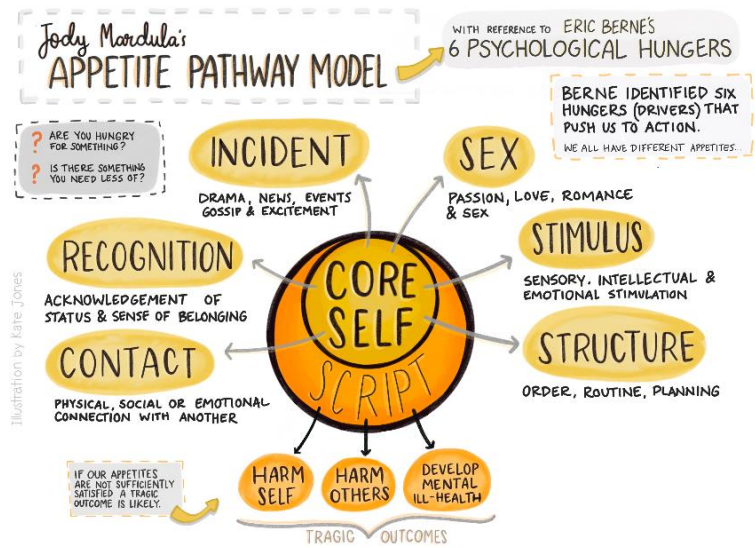 Jody Mardula's
APPETITE PATHWAY MODEL
WITH REFERENCE TO ERIC BERNE'S
6 PSYCHOLOGICAL HUNGERS
BERNE IDENTIFIED SIX
HUNGERS (DRIVERS) THAT
PUSH US TO ACTION.
WE ALL HAVE DIFFERENT APPETITES.
? ARE YOU HUNGRY
FOR SOMETHING?
? IS THERE SOMETHING
YOU NEED LESS OF?
INCIDENT
DRAMA, NEWS, EVENTS
GOSSIP & EXCITEMENT
SEX
PASSION, LOVE, ROMANCE
& SEX
RECOGNITION
ACKNOWLEDGEMENT OF
STATUS & SENSE OF BELONGING
STIMULUS
SENSORY. INTELLECTUAL &
EMOTIONAL STIMULATION
CONTACT
PHYSICAL, SOCIAL OR EMOTIONAL
CONNECTION WITH ANOTHER
STRUCTURE
ORDER, ROUTINE, PLANNING
CORE
SELF
SCRIPT
IF OUR APPETITES
ARE NOT SUFFICIENTLY
SATISFIED A TRAGIC
OUTCOME IS LIKELY.
HARM
SELF
HARM
OTHERS
DEVELOP
MENTAL
ILL-HEALTH
TRAGIC OUTCOMES
Illustration by Kate Jones